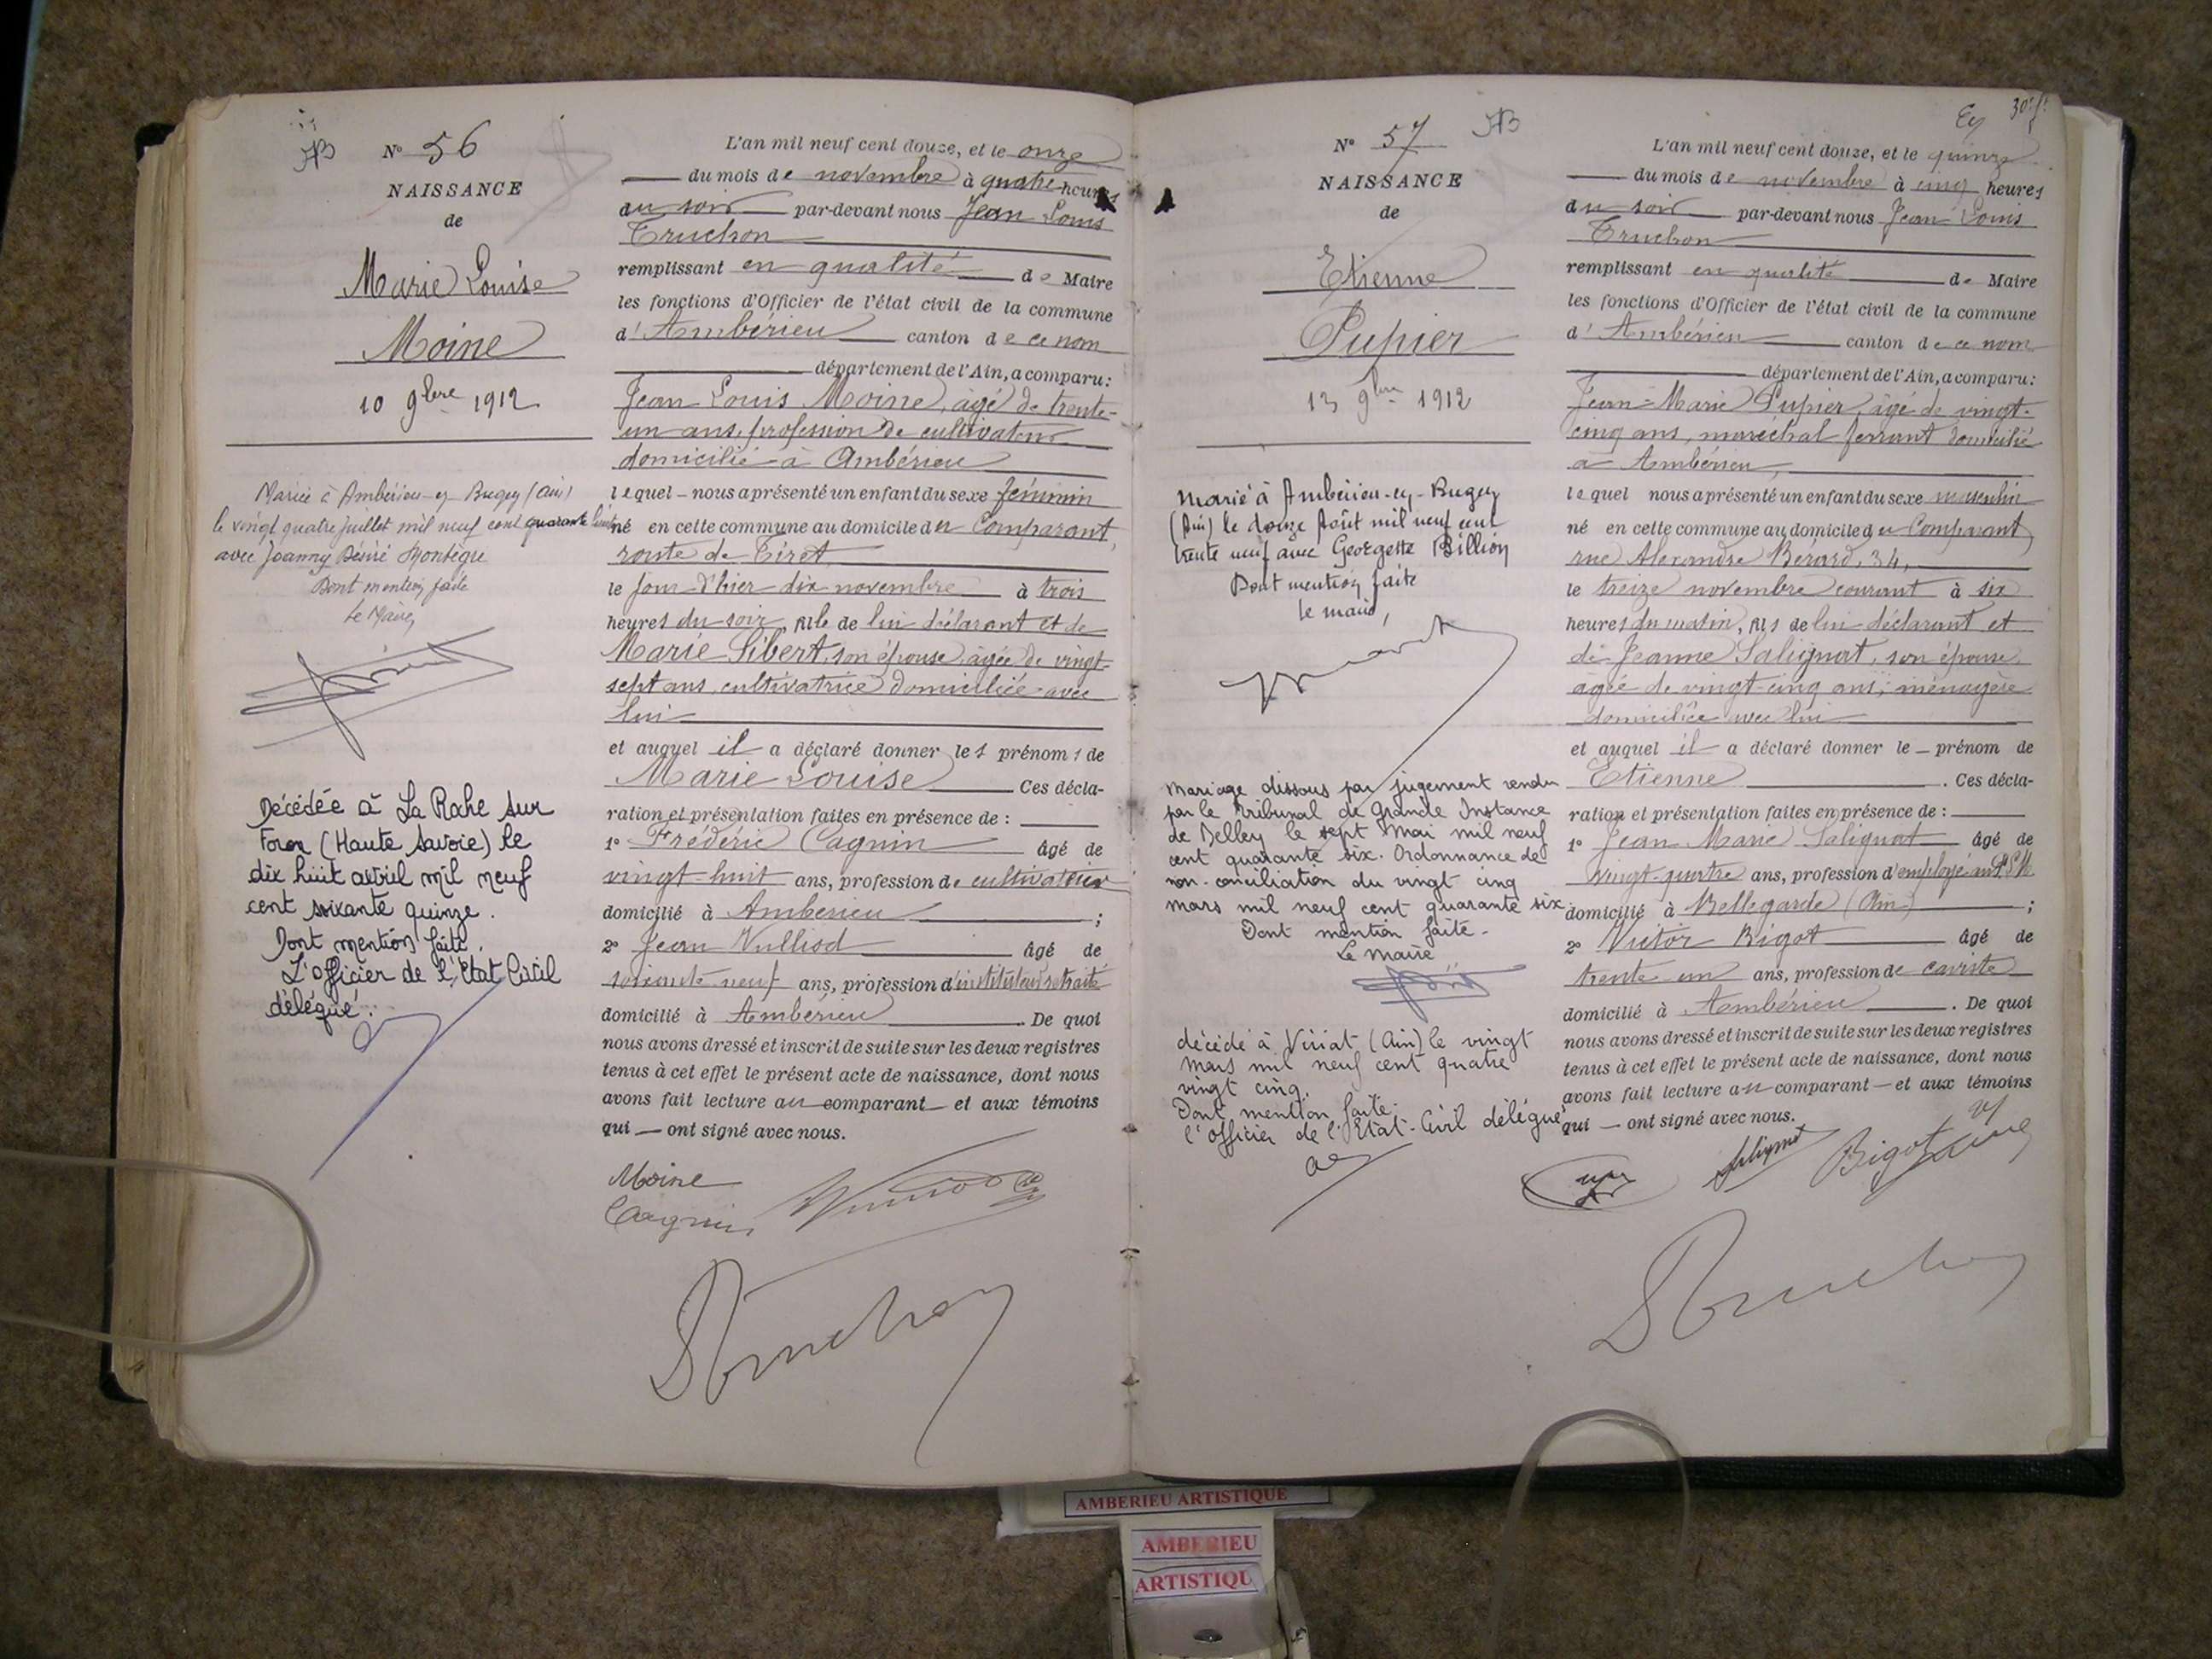 N° 56
NAISSANCE
de
Marie Louise
Moine
10 9bre 1912
Mariée à Ambérieu-en-Bugey (Ain)
le vingt quatre juillet mil neuf cent quarante
avec Joanny Désiré
Dont mention faite
Le Maire,
Décédée à La Roche sur
Foron (Haute Savoie) le
dix huit avril mil neuf
cent soixante quinze.
Dont mention faite.
L'officier de l'Etat Civil
délégué.
L'an mil neuf cent douze, et le onze
du mois de novembre à quatre heures
du soir par-devant nous Jean Louis
Truchon
remplissant en qualité de Maire
les fonctions d'Officier de l'état civil de la commune
d'Ambérieu canton de ce nom
département de l'Ain, a comparu:
Jean Louis Moine, âgé de trente-
un ans, profession de cultivateur
domicilié à Ambérieu
lequel nous a présenté un enfant du sexe féminin
né en cette commune au domicile du Comparant,
route de Tiret
le jour d'hier dix novembre à trois
heures du soir, fille de lui déclarant et de
Marie Sibert, son épouse, âgée de vingt-
sept ans, cultivatrice domiciliée avec
lui
et auquel il a déclaré donner les prénoms de
Marie Louise Ces décla-
ration et présentation faites en présence de :
1° Frédéric Cagnin âgé de
vingt-huit ans, profession de cultivateur
domicilié à Ambérieu ;
2° Jean Vulliod âgé de
soixante neuf ans, profession d'instituteur retraité
domicilié à Ambérieu. De quoi
nous avons dressé et inscrit de suite sur les deux registres
tenus à cet effet le présent acte de naissance, dont nous
avons fait lecture au comparant et aux témoins
qui ont signé avec nous.
Moine
Cagnin
Truchon
N° 57
NAISSANCE
de
Etienne
Pupier
13 9bre 1912
Marié à Ambérieu-en-Bugey
(Ain) le douze Août mil neuf cent
trente neuf avec Georgette Billion
Dont mention faite
le maire,
Mariage dissous par jugement rendu
par le Tribunal de Grande Instance
de Belley le sept Mai mil neuf
cent quarante six. Ordonnance de
non-conciliation du vingt cinq
mars mil neuf cent quarante six
Dont mention faite.
Le Maire
décédé à Viriat (Ain) le vingt
mars mil neuf cent quatre
vingt cinq.
Dont mention faite.
l'officier de l'Etat-Civil délégué
30e f.
L'an mil neuf cent douze, et le quinze
du mois de novembre à cinq heures
du soir par-devant nous Jean Louis
Truchon
remplissant en qualité de Maire
les fonctions d'Officier de l'état civil de la commune
d'Ambérieu canton de ce nom
département de l'Ain, a comparu:
Jean-Marie Pupier, âgé de vingt-
cinq ans, maréchal ferrant domicilié
à Ambérieu,
lequel nous a présenté un enfant du sexe masculin
né en cette commune au domicile du Comparant
rue Alexandre Bérard, 34,
le treize novembre courant à six
heures du matin, fils de lui déclarant et
de Jeanne Salignat, son épouse,
âgée de vingt-cinq ans, ménagère
domiciliée avec lui
et auquel il a déclaré donner le prénom de
Etienne. Ces décla-
ration et présentation faites en présence de :
1° Jean Marie Salignat âgé de
vingt-quatre ans, profession d'employé au
domicilié à Bellegarde (Ain) ;
2° Victor Bigot âgé de
trente un ans, profession de caviste
domicilié à Ambérieu. De quoi
nous avons dressé et inscrit de suite sur les deux registres
tenus à cet effet le présent acte de naissance, dont nous
avons fait lecture au comparant et aux témoins
qui ont signé avec nous.
Salignat Bigot
Truchon
AMBERIEU ARTISTIQUE
AMBERIEU
ARTISTIQU